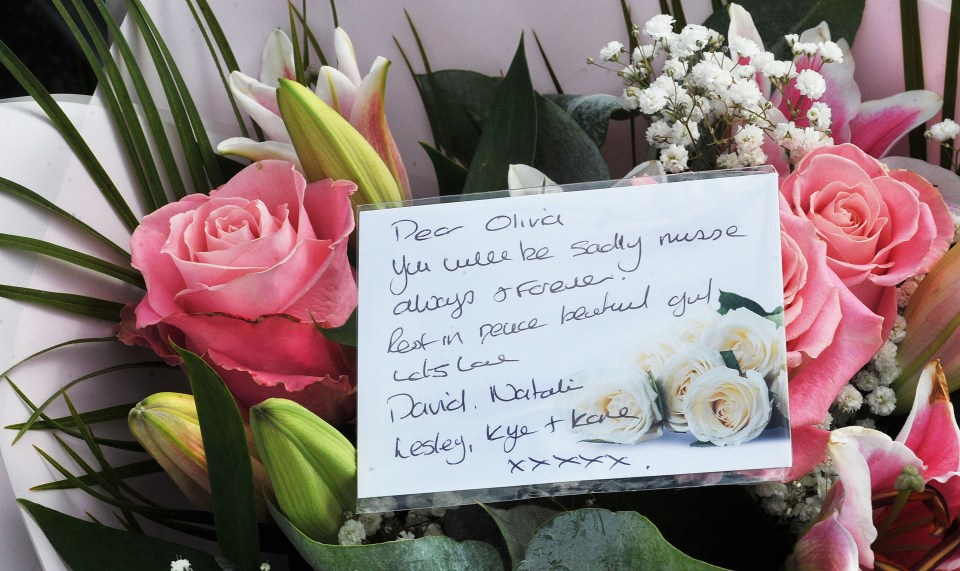 Dear Olivia
You will be sadly misse
always + Forever.
Rest in peace beautiful girl
Lots Love
David, Natali
Lesley, Kye + Kane
xxxxx.